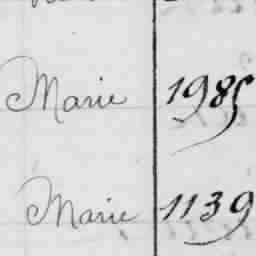 Marie 1985
Marie 1139